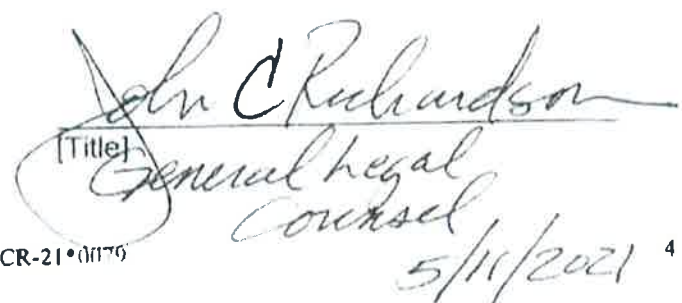 John C Richardson
[Title]
General Legal
Counsel
5/11/2021
CR-21•0079 4